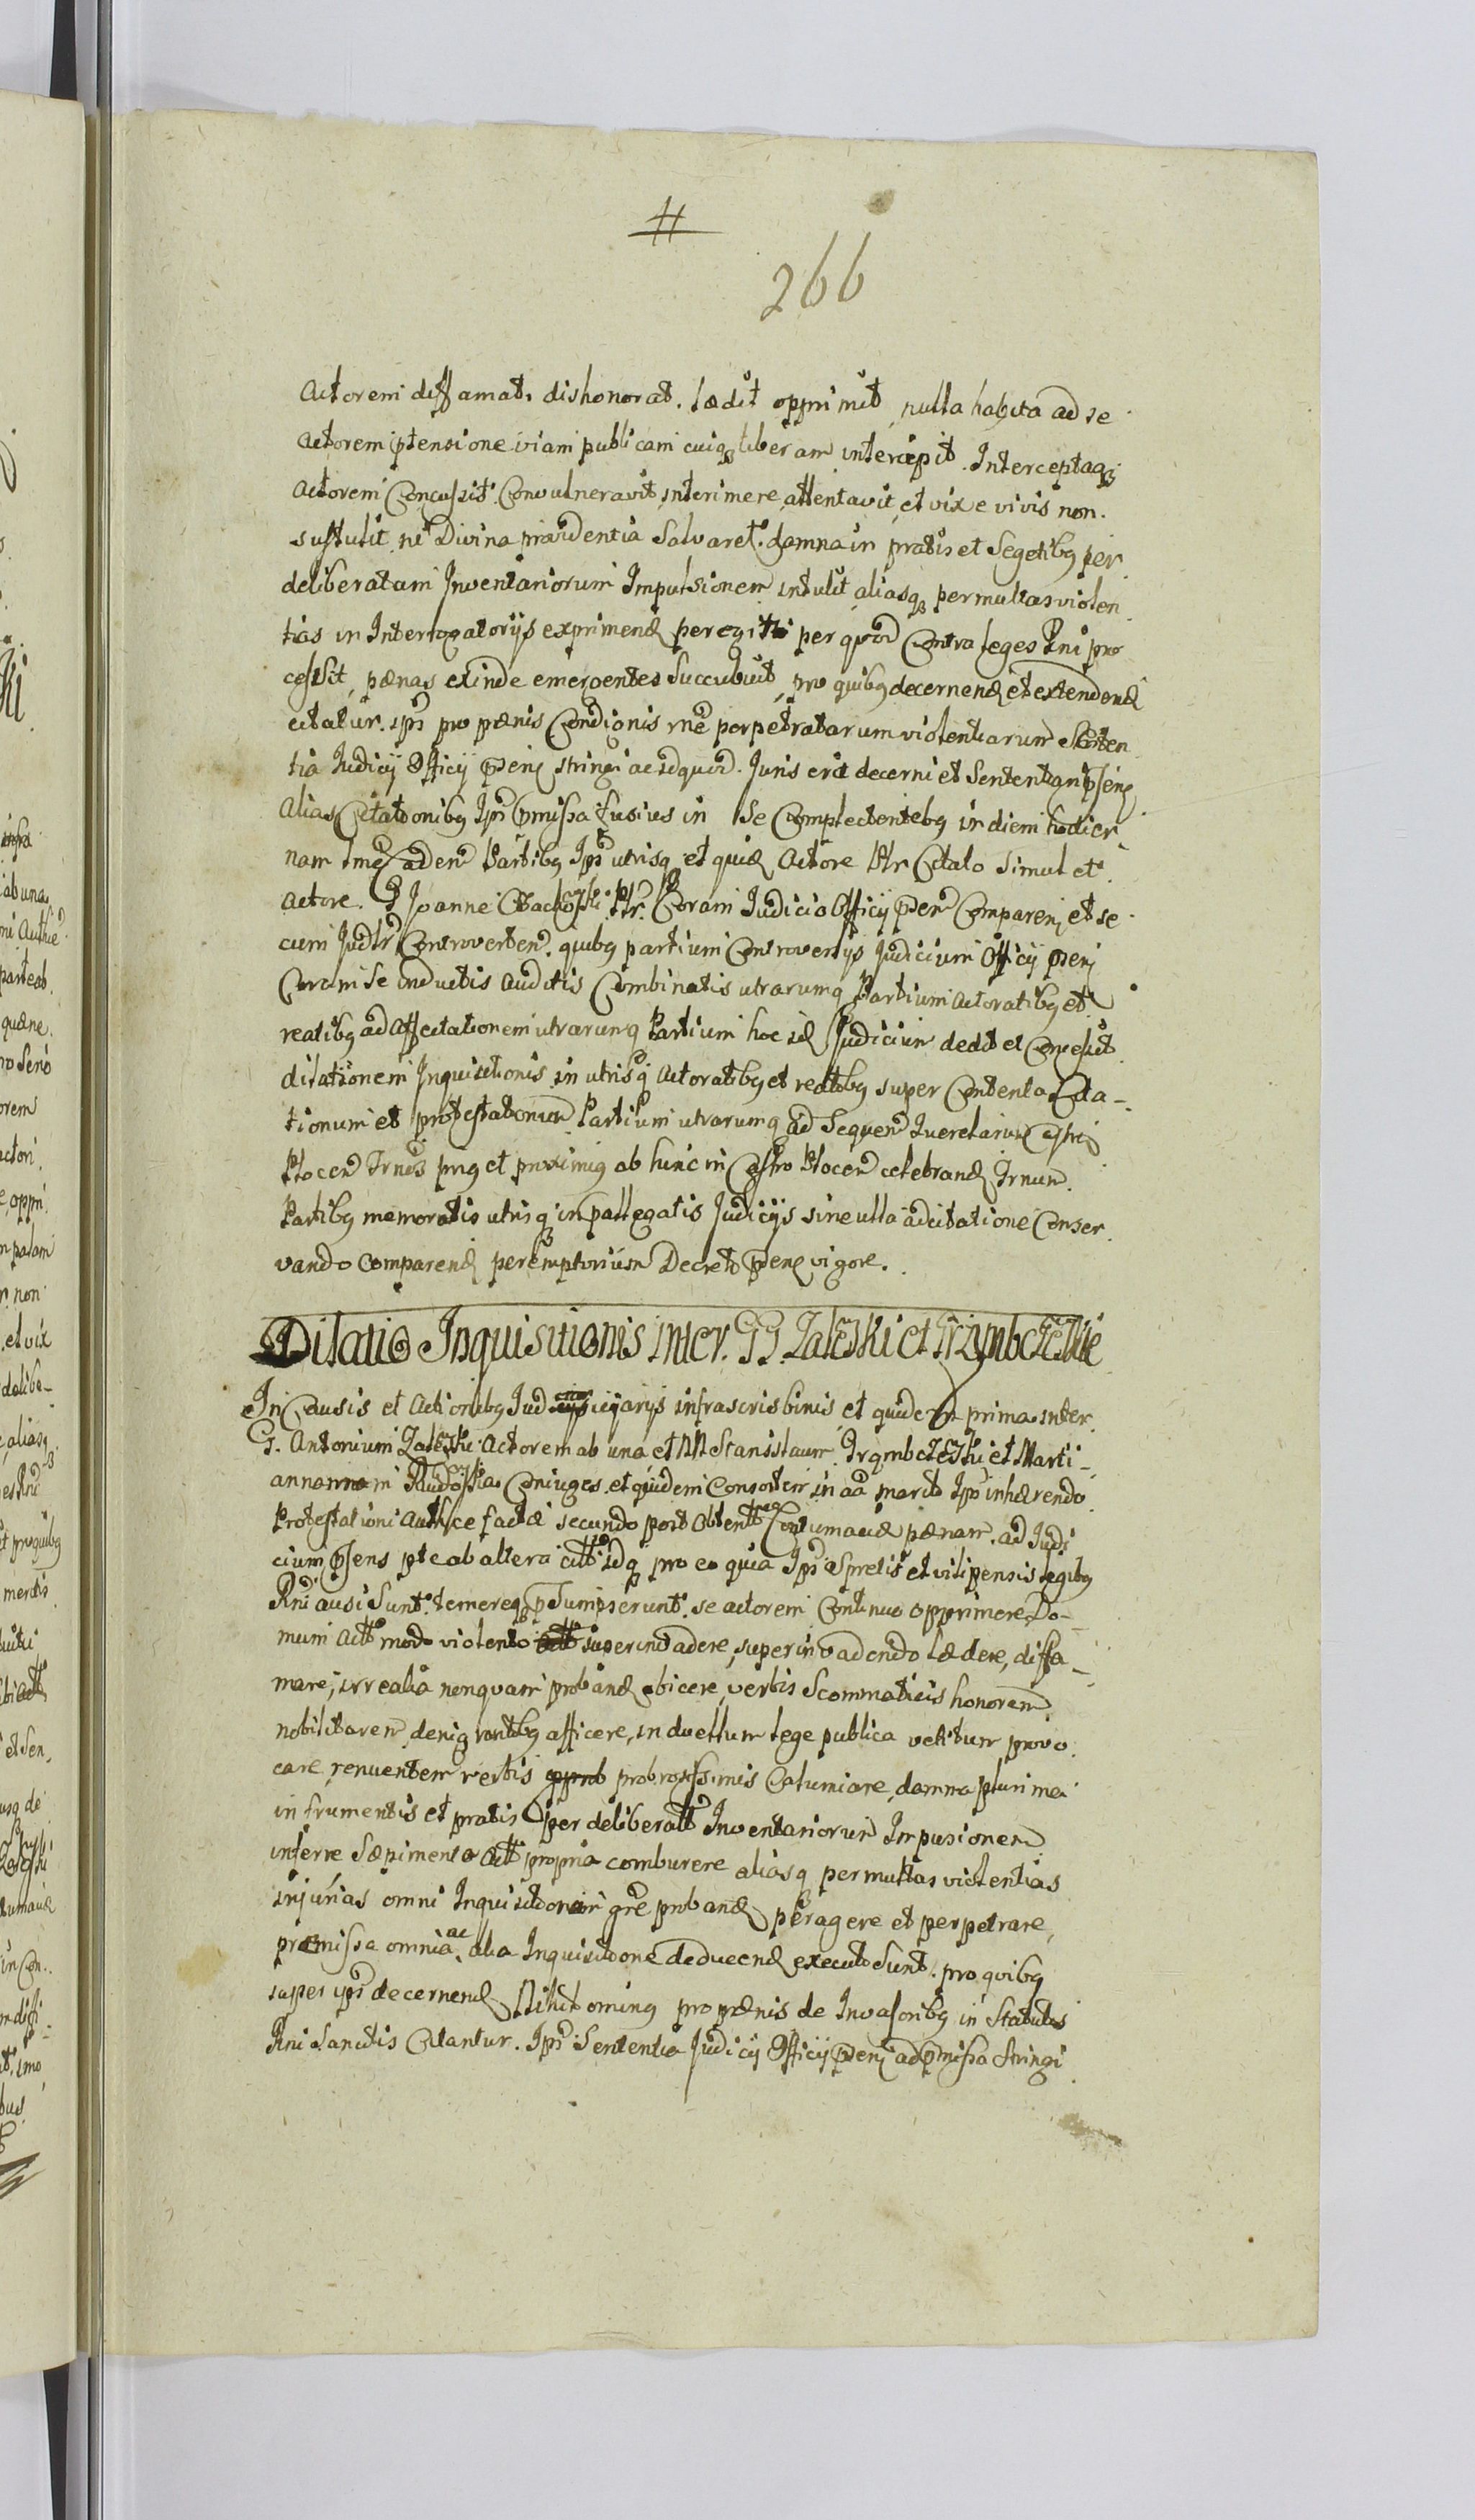 #
266
Actorem diffamat, dishonorat. lædit opprimit, nulla habita ad se
Actorem ptensione viam publicam cuiq liberam intercepit. Interceptaq
Actorem Concussit. Convulneravit, interimere attentavit, et vix e vivis non.
sustulit, ni Divina providentia Salvaret. damna in pratis et Segetibq per
deliberatam Inventariorum Impulsionem intulit, aliasq permultas violen
tias in Interrogatorijs exprimend peregit per quod Contra leges Rni pro
cessit, pænas exinde emergentes Succubuit, pro quibq decernend et extendend
citatur. ips pro pænis Condignis rne perpetratarum violentiarum Senten
tia Iudicij Officij psens stringi ac idquod Juris erit decerni et Sententiari psens
Alias Citationibq Ips pmissa fusius in Se Complectentibq in diem hodier
nam Caden Partibq Ips utrisq et quid Actore Citato Simul et
Actore. G Joanne Ptr. Coram Iudicio Officij psen Comparen et se
cum Judlr Controverten. quibq partium Controversijs Judicium Officij psens
Coram Se Inductis Auditis Combinatis utrarumq Partium Actoratibq et
reatibq ad Affectationem utrarumq Partium hoc id Judicium dedit et Concessit
dilationem Inquisitionis in utrisq Actoratibq et reatibq super Contenta Cita-
tionum et protestationum Partium utrarumq ad Sequen Querelarum Castri
Plocen Trnos prig et proximig ab hinc in Castro Plocen celebrand Trnum.
Partibq memoratis utrisq in pallegatis Judicijs sine ulla adcitatione Conser
vando Comparend peremptorium Decreto psens vigore.
Dilatio Inquisitionis inter. GG. Zaleski et Trzymbczeskie
In Causis et Actionibq Jud icijarijs infrascris binis et quidem prima inter
G. Antonium Zaleski Actorem ab una et NN Stanislaum Trąmbczeski et Marti-
annam Coniuges et quidem Consortem in aa marito Ips inhærendo
Protestationi Authce factæ secundo post Obtent Contumaciæ pænam ad Judi
cium psens pte ab altera citt idq pro eo quia Ips Spretis et vilipensis legibq
Rni ausi Sunt. temereq pSumpserunt. se actorem Continuo opprimere, Do-
mum Actt modo violento superinvadere, superinvadendo lædere, diffa-
mare, irrealia nonquam proband obicere, verbis Scommaticis honorem
nobilitarem denigrantibq afficere, in duellum lege publica vetitum provo
care renuentem verbis probrosissimis Calumiare, damna plurima
in frumentis et pratis per deliberatt Inventariorum Impusionem
inferre Sæpimenta Actt propria comburere aliasq permultas violentias
injurias omni Inquisitionari gre proband peragere et perpetrare,
præmissa omnia ac alia Inquisitione deducend executi Sunt. pro quibq
super ips decernend pro pænis de Invasoribq in Statutis
Rni Sancitis Citantur. Ips Sententia Judicij Officij psens ad pmissa Stringi